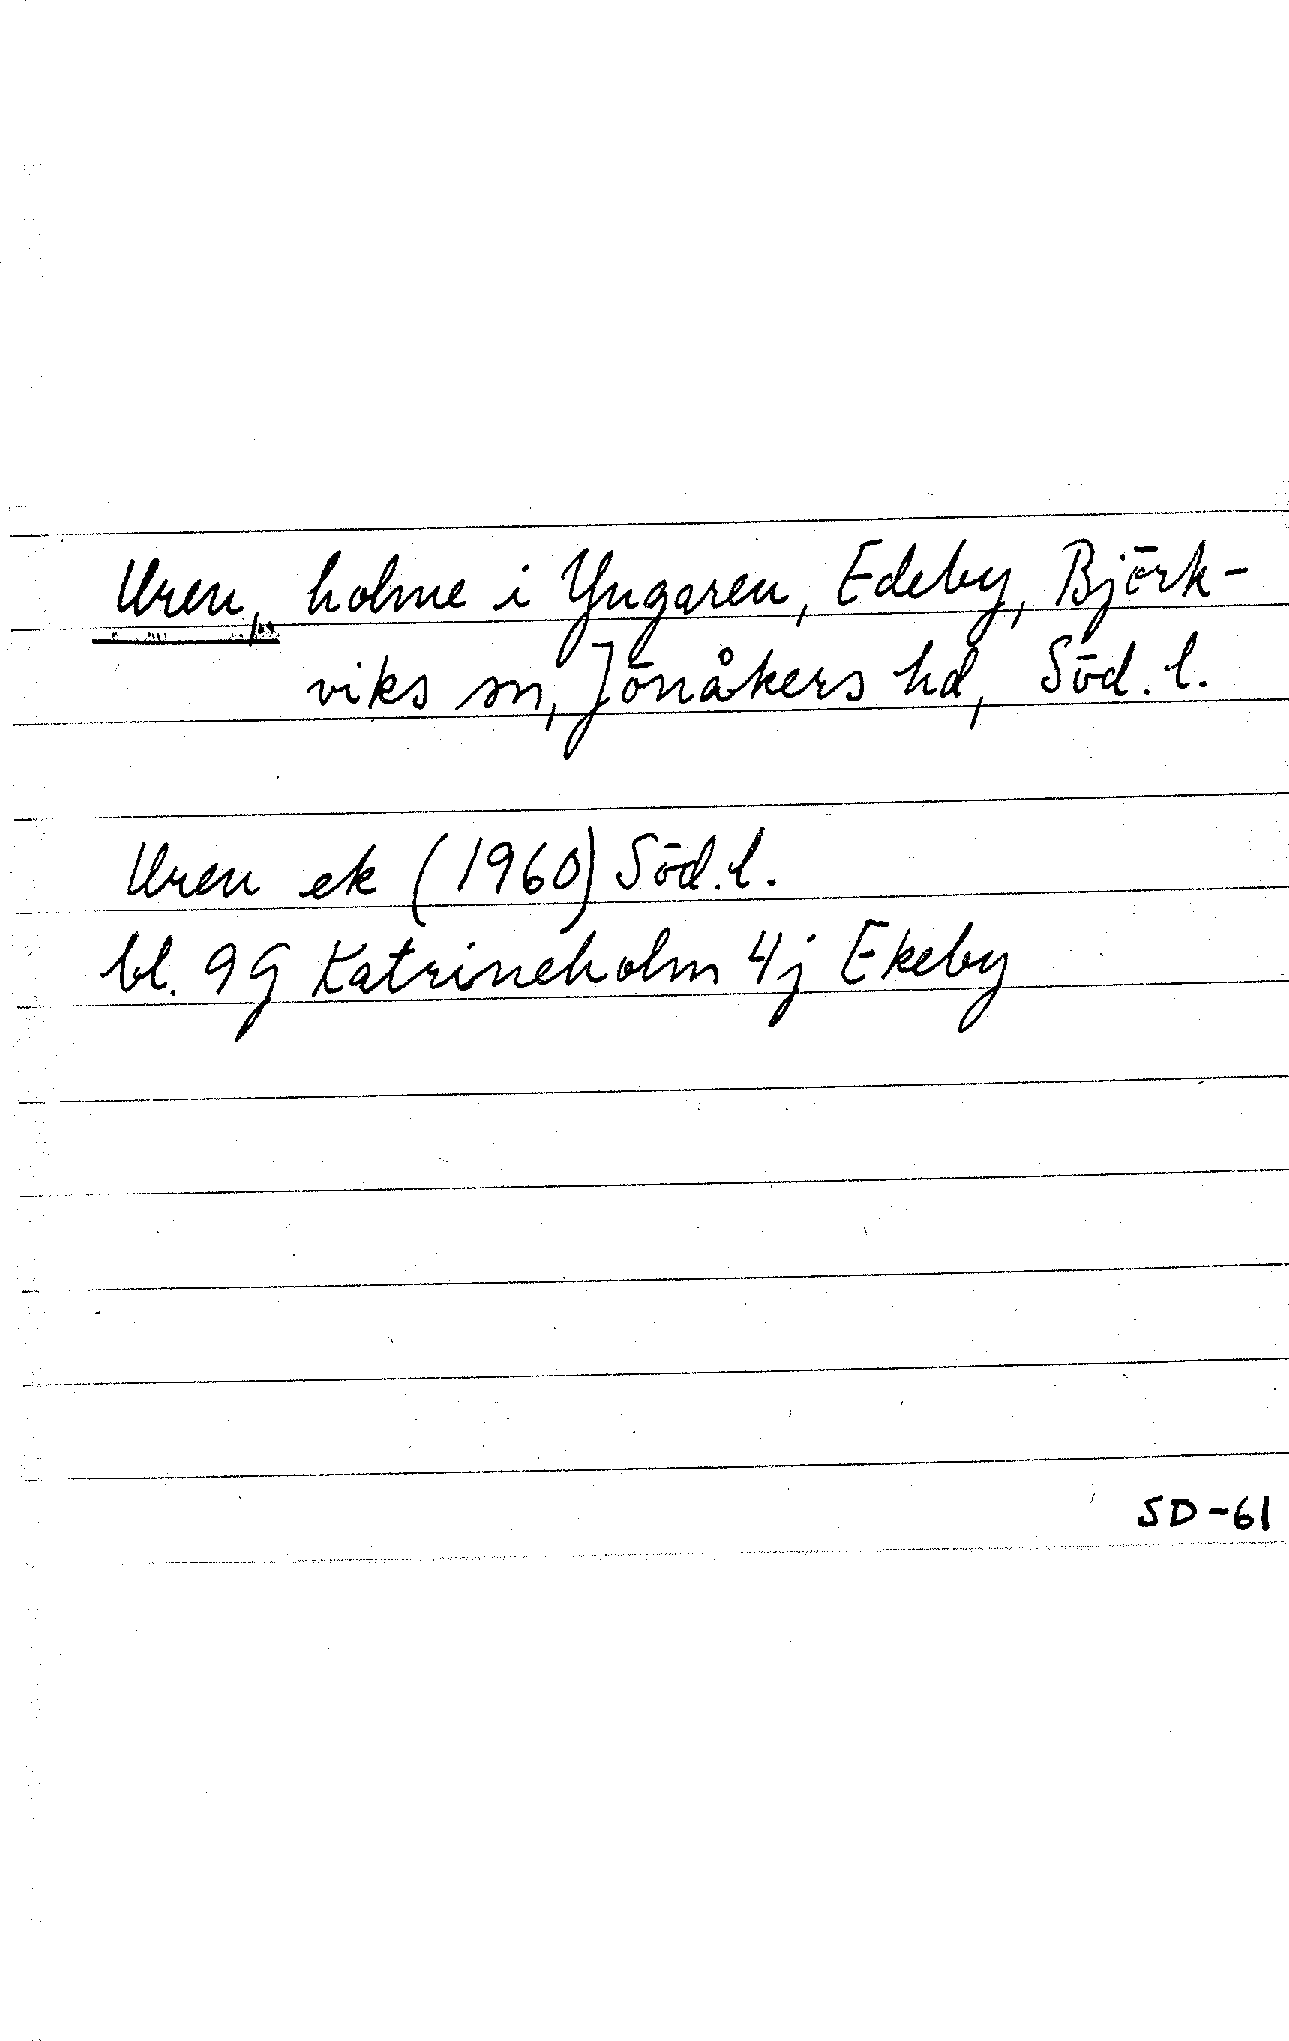 Uren, holme i Yngaren, Edeby, Björk-
viks sn, Jönåkers hd, Söd. l.
Uren ek (1960) Söd. l.
bl. 9G Katrineholm 4j Ekeby
SD-61